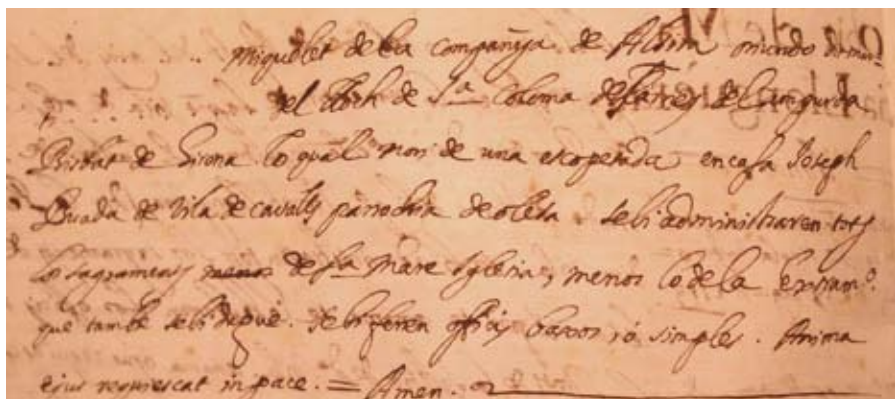 Miquelet de la compañya de
del lloch de Sta Coloma de
Bisbat de Girona lo qual mori de una escopetada en casa Joseph
Buada de Vila de cavalls parrochia de olesa se li administraren tots
los sagraments menos de sta Mare Iglesia, menos lo de la
que tambe se li se li feren baxos o simples. Anima
ejus requiescat in pace. = Amen.